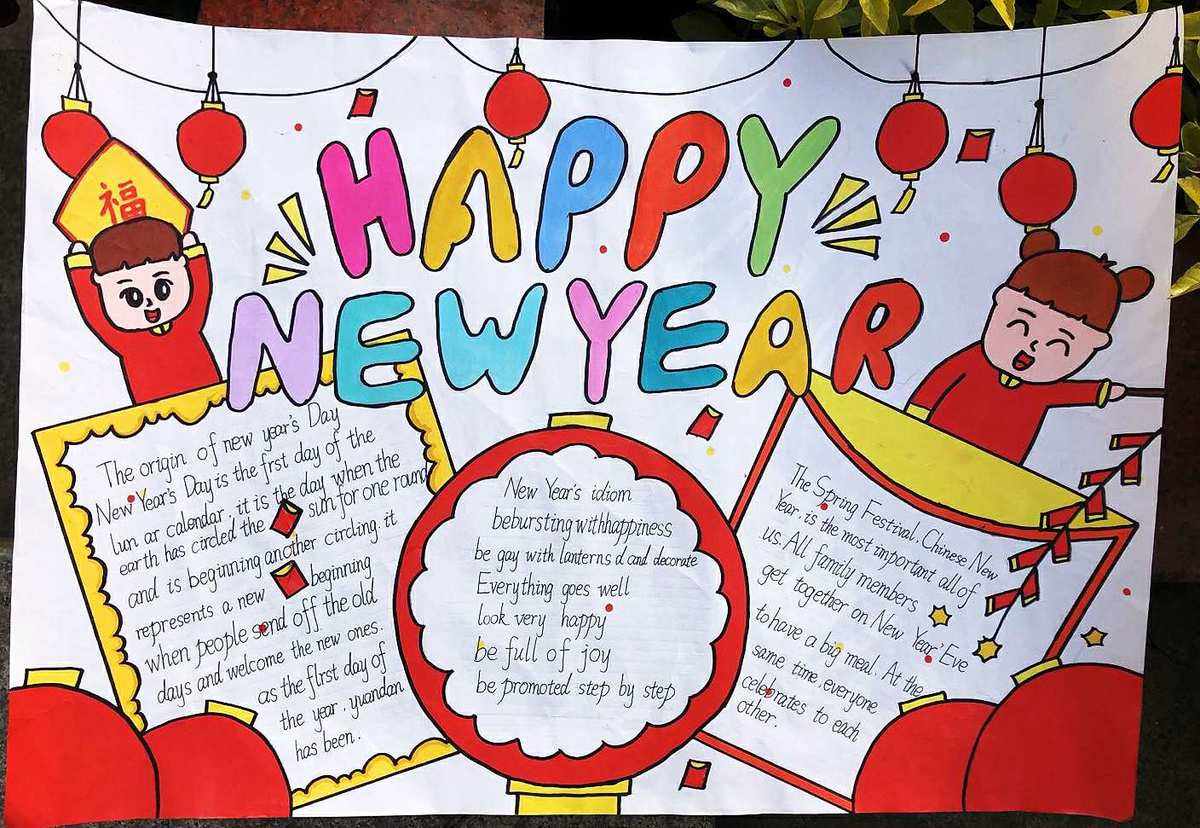 福
HAPPY
NEW YEAR
The origin of new year's Day
New Year's Day is the first day of the
lun ar calendar, it is the day when the
earth has circled the sun for one round
and is beginning another circling. it
represents a new beginning
when people send off the old
days and welcome the new ones.
as the first day of
the year, yuandan
has been.
New Year's idiom
be bursting with happiness
be gay with lanterns d and decorate
Everything goes well
look very happy
be full of joy
be promoted step by step
The Spring Festival, Chinese New
Year, is the most important all of
us. All family members
get together on New Year' Eve
to have a big meal. At the
same time, everyone
celebrates to each
other.